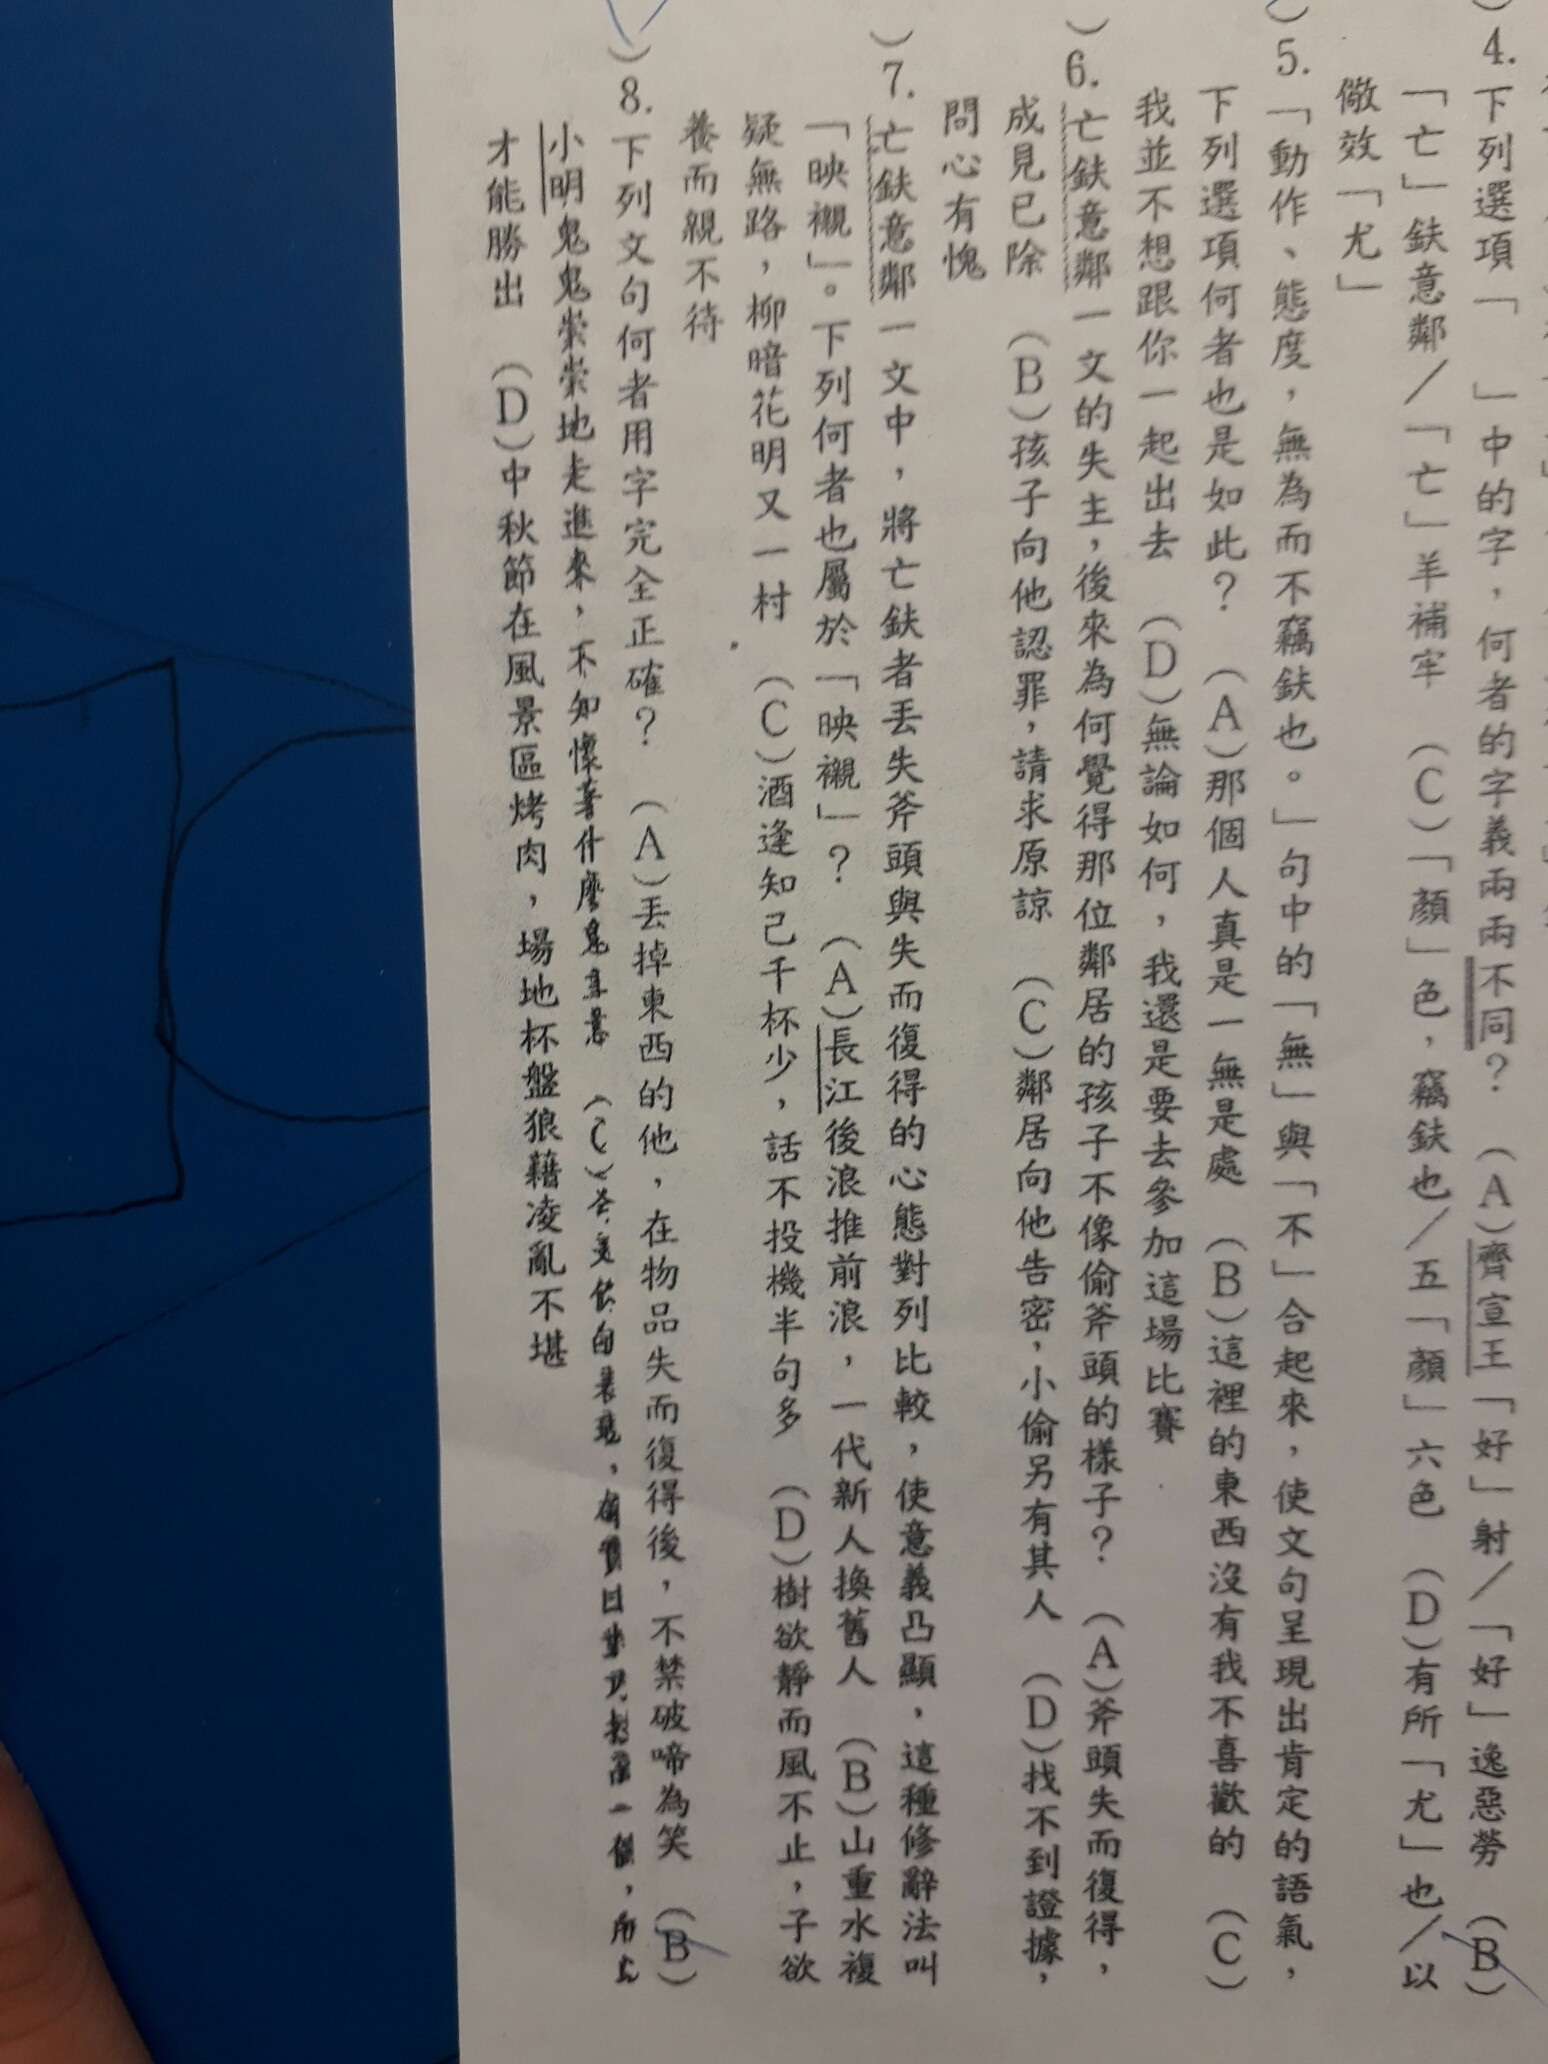 )4.下列選項「　」中的字，何者的字義兩兩不同？　(A)齊宣王「好」射／「好」逸惡勞　(B)
「亡」鈇意鄰／「亡」羊補牢　(C)「顏」色，竊鈇也／五「顏」六色　(D)有所「尤」也／以
儆效「尤」
)5.「動作、態度，無為而不竊鈇也。」句中的「無」與「不」合起來，使文句呈現出肯定的語氣，
下列選項何者也是如此？　(A)那個人真是一無是處　(B)這裡的東西沒有我不喜歡的　(C)
我並不想跟你一起出去　(D)無論如何，我還是要去參加這場比賽
)6.亡鈇意鄰一文的失主，後來為何覺得那位鄰居的孩子不像偷斧頭的樣子？　(A)斧頭失而復得，
成見已除　(B)孩子向他認罪，請求原諒　(C)鄰居向他告密，小偷另有其人　(D)找不到證據，
問心有愧
)7.亡鈇意鄰一文中，將亡鈇者丟失斧頭與失而復得的心態對列比較，使意義凸顯，這種修辭法叫
「映襯」。下列何者也屬於「映襯」？　(A)長江後浪推前浪，一代新人換舊人　(B)山重水複
疑無路，柳暗花明又一村　(C)酒逢知己千杯少，話不投機半句多　(D)樹欲靜而風不止，子欲
養而親不待
)8.下列文句何者用字完全正確？　(A)丟掉東西的他，在物品失而復得後，不禁破啼為笑　(B)
小明鬼鬼祟祟地走進來，不知懷著什麼鬼
才能勝出　(D)中秋節在風景區烤肉，場地杯盤狼藉凌亂不堪